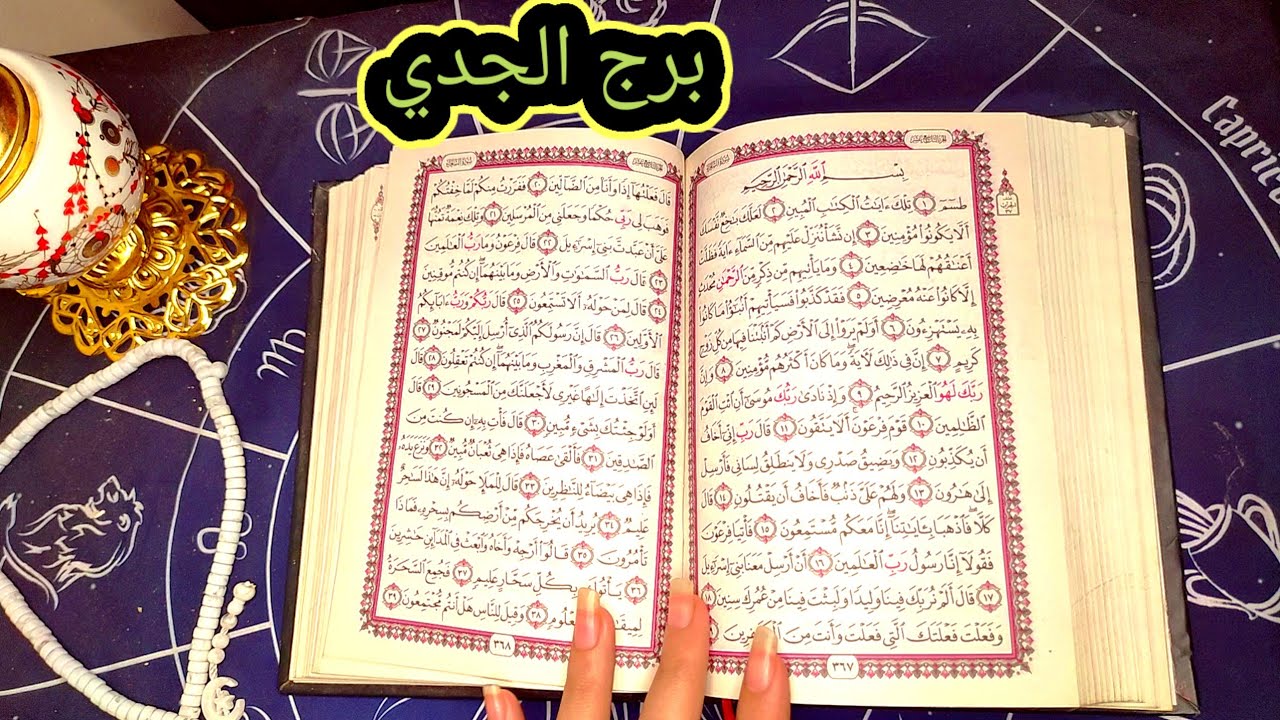 برج الجدي
Capricorn
بِسْمِ اللَّهِ الرَّحْمَٰنِ الرَّحِيمِ
طسٓمٓ ١ تِلْكَ ءَايَٰتُ ٱلْكِتَٰبِ ٱلْمُبِينِ ٢ لَعَلَّكَ بَٰخِعٌ نَّفْسَكَ
أَلَّا يَكُونُوا۟ مُؤْمِنِينَ ٣ إِن نَّشَأْ نُنَزِّلْ عَلَيْهِم مِّنَ ٱلسَّمَآءِ ءَايَةً فَظَلَّتْ
أَعْنَٰقُهُمْ لَهَا خَٰضِعِينَ ٤ وَمَا يَأْتِيهِم مِّن ذِكْرٍ مِّنَ ٱلرَّحْمَٰنِ مُحْدَثٍ
إِلَّا كَانُوا۟ عَنْهُ مُعْرِضِينَ ٥ فَقَدْ كَذَّبُوا۟ فَسَيَأْتِيهِمْ أَنۢبَٰٓؤُا۟ مَا كَانُوا۟
بِهِۦ يَسْتَهْزِءُونَ ٦ أَوَلَمْ يَرَوْا۟ إِلَى ٱلْأَرْضِ كَمْ أَنۢبَتْنَا فِيهَا مِن كُلِّ زَوْجٍ
كَرِيمٍ ٧ إِنَّ فِى ذَٰلِكَ لَءَايَةً وَمَا كَانَ أَكْثَرُهُم مُّؤْمِنِينَ ٨ وَإِنَّ
رَبَّكَ لَهُوَ ٱلْعَزِيزُ ٱلرَّحِيمُ ٩ وَإِذْ نَادَىٰ رَبُّكَ مُوسَىٰٓ أَنِ ٱئْتِ ٱلْقَوْمَ
ٱلظَّٰلِمِينَ ١٠ قَوْمَ فِرْعَوْنَ أَلَا يَتَّقُونَ ١١ قَالَ رَبِّ إِنِّىٓ أَخَافُ
أَن يُكَذِّبُونِ ١٢ وَيَضِيقُ صَدْرِى وَلَا يَنطَلِقُ لِسَانِى فَأَرْسِلْ
إِلَىٰ هَٰرُونَ ١٣ وَلَهُمْ عَلَىَّ ذَنۢبٌ فَأَخَافُ أَن يَقْتُلُونِ ١٤ قَالَ
كَلَّا فَٱذْهَبَا بِـَٔايَٰتِنَآ إِنَّا مَعَكُم مُّسْتَمِعُونَ ١٥ فَأْتِيَا فِرْعَوْنَ
فَقُولَآ إِنَّا رَسُولُ رَبِّ ٱلْعَٰلَمِينَ ١٦ أَنْ أَرْسِلْ مَعَنَا بَنِىٓ إِسْرَٰٓءِيلَ
١٧ قَالَ أَلَمْ نُرَبِّكَ فِينَا وَلِيدًا وَلَبِثْتَ فِينَا مِنْ عُمُرِكَ سِنِينَ ١٨
وَفَعَلْتَ فَعْلَتَكَ ٱلَّتِى فَعَلْتَ وَأَنتَ مِنَ ٱلْكَٰفِرِينَ ١٩
٣٦٧
قَالَ فَعَلْتُهَآ إِذًا وَأَنَا۠ مِنَ ٱلضَّآلِّينَ ٢٠ فَفَرَرْتُ مِنكُمْ لَمَّا خِفْتُكُمْ
فَوَهَبَ لِى رَبِّى حُكْمًا وَجَعَلَنِى مِنَ ٱلْمُرْسَلِينَ ٢١ وَتِلْكَ نِعْمَةٌ تَمُنُّهَا
عَلَىَّ أَنْ عَبَّدتَّ بَنِىٓ إِسْرَٰٓءِيلَ ٢٢ قَالَ فِرْعَوْنُ وَمَا رَبُّ ٱلْعَٰلَمِينَ
٢٣ قَالَ رَبُّ ٱلسَّمَٰوَٰتِ وَٱلْأَرْضِ وَمَا بَيْنَهُمَآ إِن كُنتُم مُّوقِنِينَ
٢٤ قَالَ لِمَنْ حَوْلَهُۥٓ أَلَا تَسْتَمِعُونَ ٢٥ قَالَ رَبُّكُمْ وَرَبُّ ءَابَآئِكُمُ
ٱلْأَوَّلِينَ ٢٦ قَالَ إِنَّ رَسُولَكُمُ ٱلَّذِىٓ أُرْسِلَ إِلَيْكُمْ لَمَجْنُونٌ ٢٧
قَالَ رَبُّ ٱلْمَشْرِقِ وَٱلْمَغْرِبِ وَمَا بَيْنَهُمَآ إِن كُنتُمْ تَعْقِلُونَ ٢٨ قَالَ
لَئِنِ ٱتَّخَذْتَ إِلَٰهًا غَيْرِى لَأَجْعَلَنَّكَ مِنَ ٱلْمَسْجُونِينَ ٢٩ قَالَ
أَوَلَوْ جِئْتُكَ بِشَىْءٍ مُّبِينٍ ٣٠ قَالَ فَأْتِ بِهِۦٓ إِن كُنتَ مِنَ
ٱلصَّٰدِقِينَ ٣١ فَأَلْقَىٰ عَصَاهُ فَإِذَا هِىَ ثُعْبَانٌ مُّبِينٌ ٣٢ وَنَزَعَ يَدَهُۥ
فَإِذَا هِىَ بَيْضَآءُ لِلنَّٰظِرِينَ ٣٣ قَالَ لِلْمَلَإِ حَوْلَهُۥٓ إِنَّ هَٰذَا لَسَٰحِرٌ
عَلِيمٌ ٣٤ يُرِيدُ أَن يُخْرِجَكُم مِّنْ أَرْضِكُم بِسِحْرِهِۦ فَمَاذَا
تَأْمُرُونَ ٣٥ قَالُوٓا۟ أَرْجِهْ وَأَخَاهُ وَٱبْعَثْ فِى ٱلْمَدَآئِنِ حَٰشِرِينَ
٣٦ يَأْتُوكَ بِكُلِّ سَحَّارٍ عَلِيمٍ ٣٧ فَجُمِعَ ٱلسَّحَرَةُ
مَّعْلُومٍ ٣٨ وَقِيلَ لِلنَّاسِ هَلْ أَنتُم مُّجْتَمِعُونَ ٣٩
٣٦٨